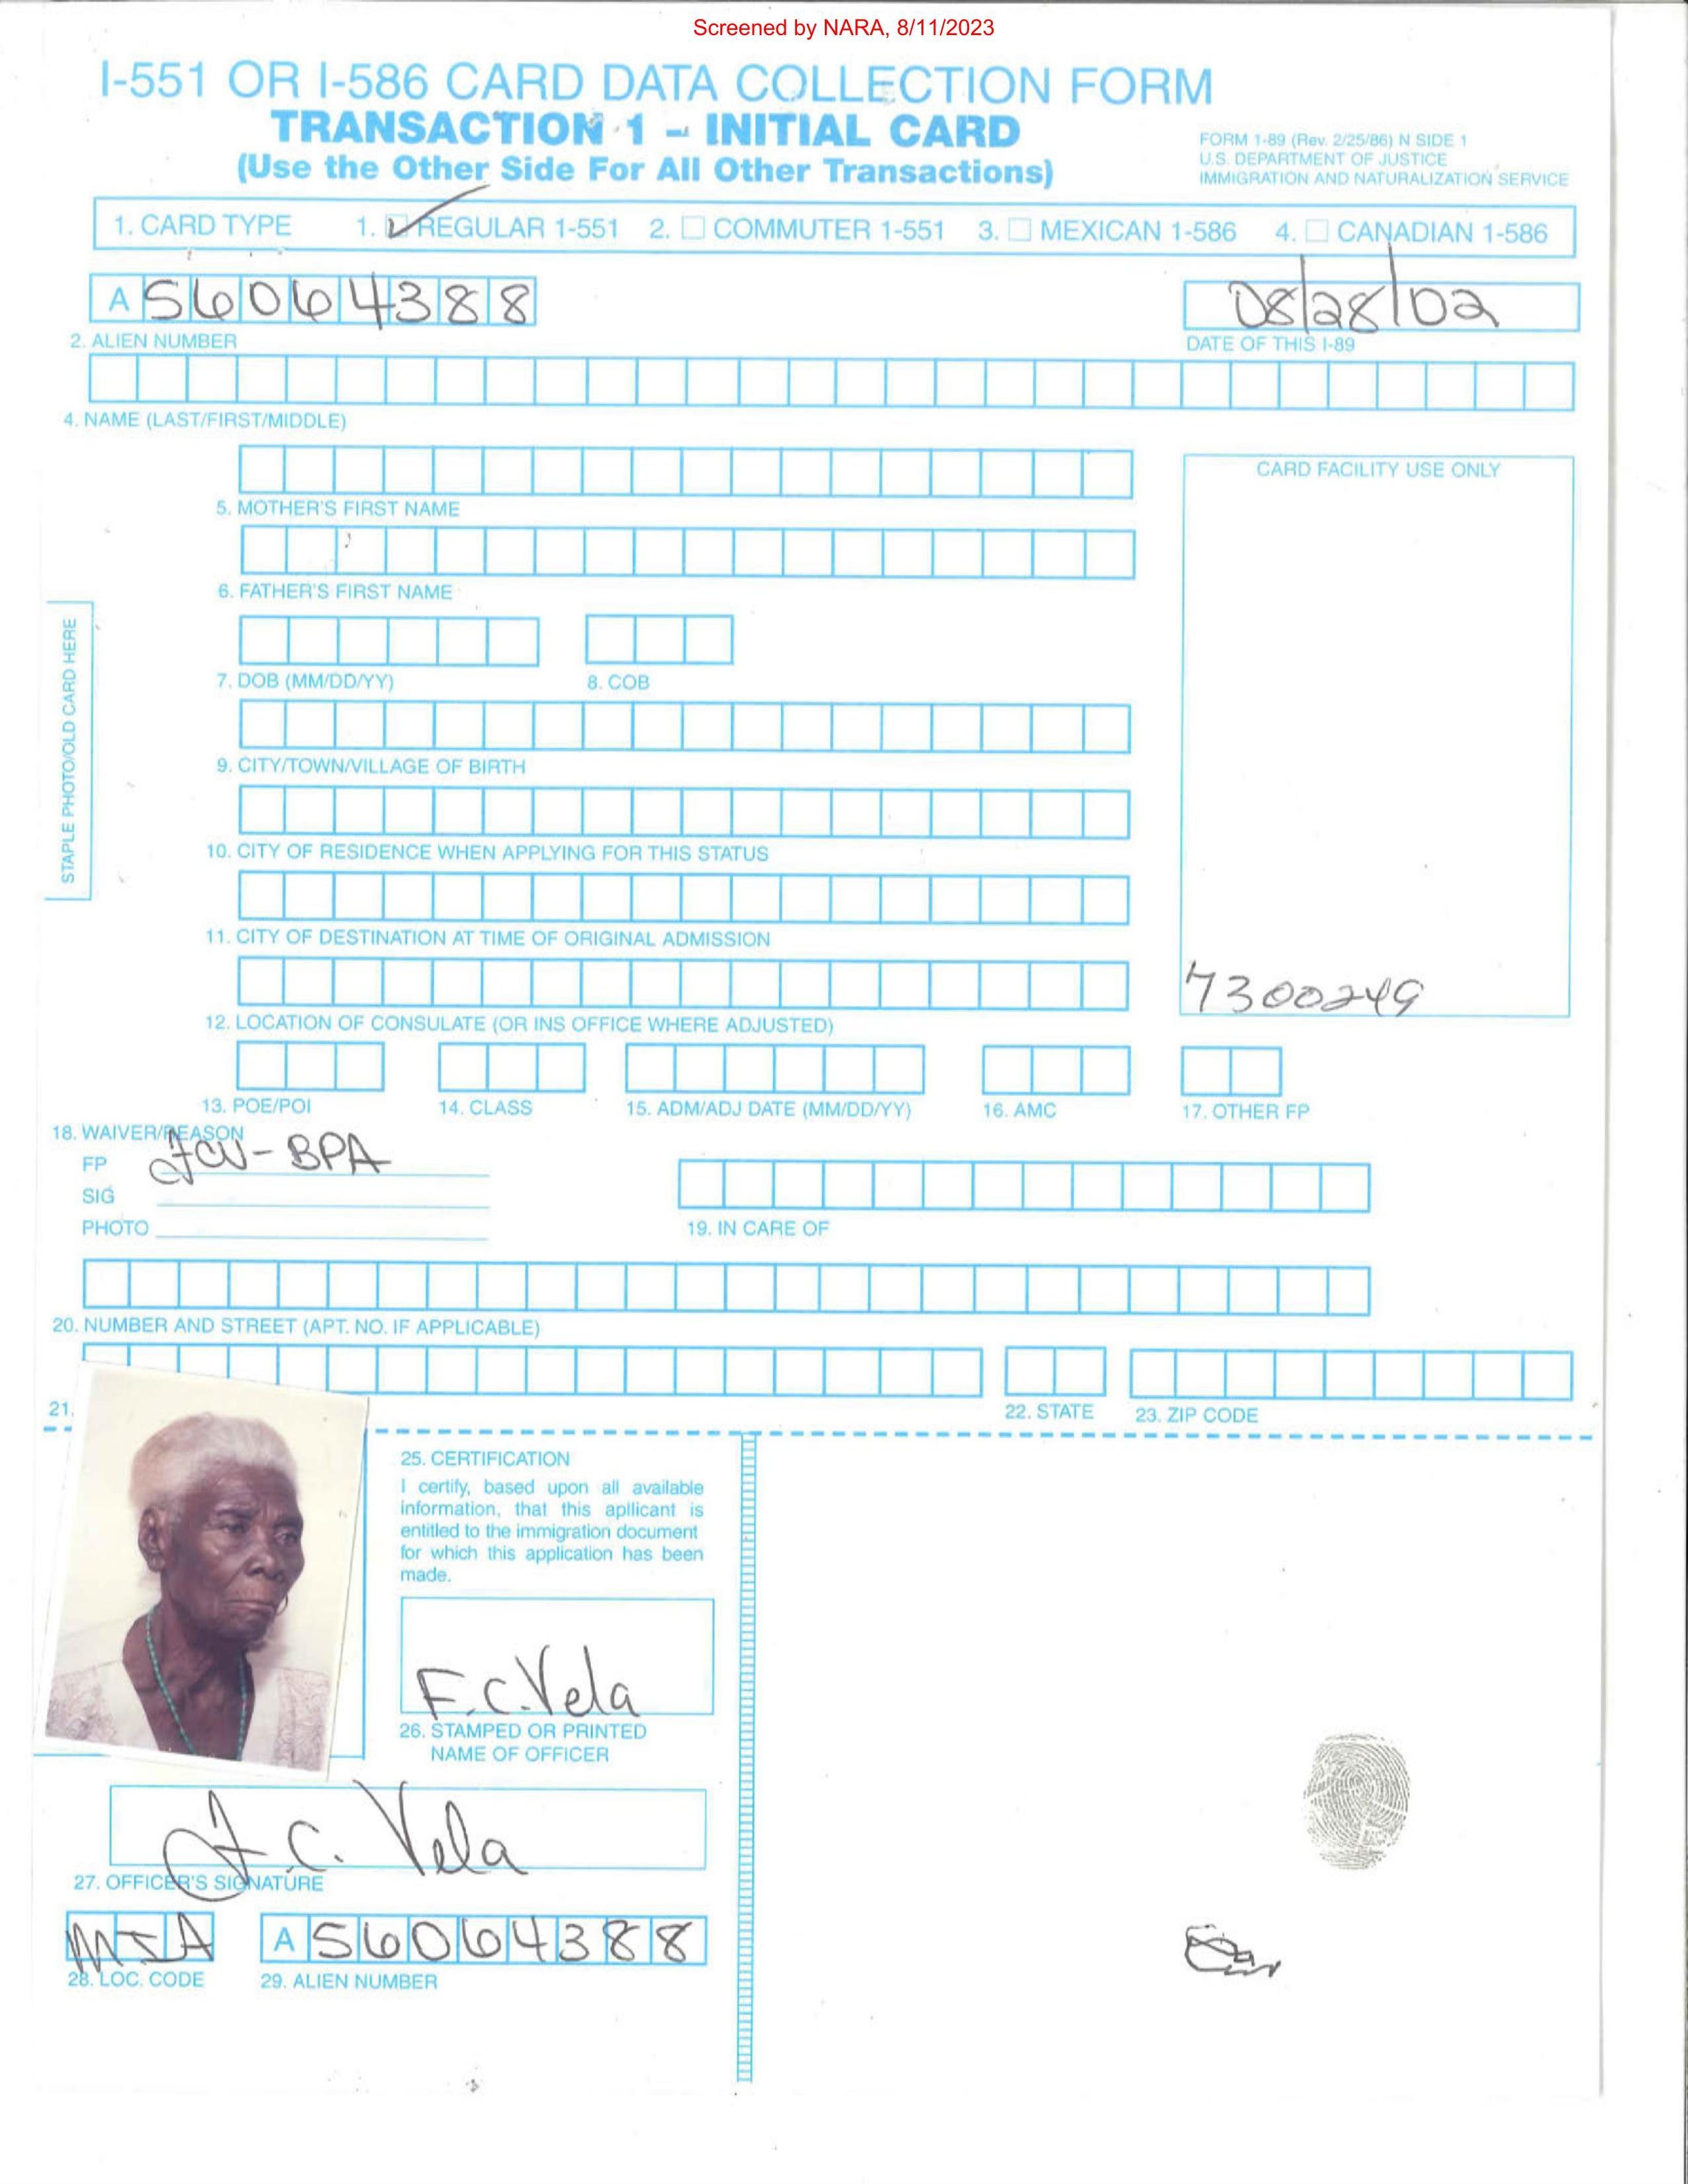 Screened by NARA, 8/11/2023
I-551 OR I-586 CARD DATA COLLECTION FORM
TRANSACTION 1 – INITIAL CARD
(Use the Other Side For All Other Transactions)
FORM 1-89 (Rev. 2/25/86) N SIDE 1
U.S. DEPARTMENT OF JUSTICE
IMMIGRATION AND NATURALIZATION SERVICE
1. CARD TYPE 1. REGULAR 1-551 2. COMMUTER 1-551 3. MEXICAN 1-586 4. CANADIAN 1-586
A 56064388
08/28/02
2. ALIEN NUMBER
DATE OF THIS I-89
4. NAME (LAST/FIRST/MIDDLE)
CARD FACILITY USE ONLY
5. MOTHER'S FIRST NAME
6. FATHER'S FIRST NAME
STAPLE PHOTO/OLD CARD HERE
7. DOB (MM/DD/YY) 8. COB
9. CITY/TOWN/VILLAGE OF BIRTH
10. CITY OF RESIDENCE WHEN APPLYING FOR THIS STATUS
11. CITY OF DESTINATION AT TIME OF ORIGINAL ADMISSION
7300249
12. LOCATION OF CONSULATE (OR INS OFFICE WHERE ADJUSTED)
13. POE/POI 14. CLASS 15. ADM/ADJ DATE (MM/DD/YY) 16. AMC 17. OTHER FP
18. WAIVER/REASON
FP FCV-BPA
SIG
PHOTO
19. IN CARE OF
20. NUMBER AND STREET (APT. NO. IF APPLICABLE)
21. 22. STATE 23. ZIP CODE
25. CERTIFICATION
I certify, based upon all available
information, that this apllicant is
entitled to the immigration document
for which this application has been
made.
F.C. Vela
26. STAMPED OR PRINTED
NAME OF OFFICER
F. C. Vela
27. OFFICER'S SIGNATURE
A 56064388
28. LOC. CODE 29. ALIEN NUMBER